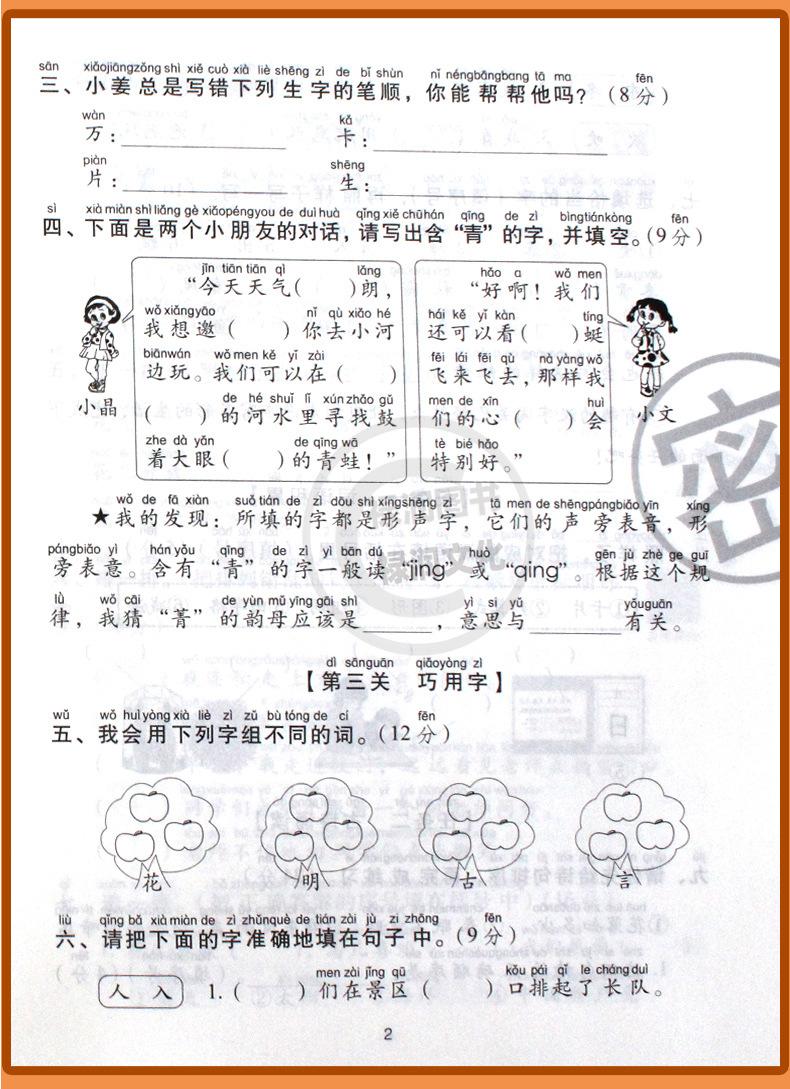 sān xiǎojiāngzǒng shì xiě cuò xià liè shēng zì de bǐ shùn nǐ néngbāngbang tā ma fēn
三、小姜总是写错下列生字的笔顺，你能帮帮他吗？(8分)
wàn kǎ
万：____________ 卡：____________
piàn shēng
片：____________ 生：____________
sì xià miàn shì liǎng gè xiǎopéngyou de duì huà qǐng xiě chūhán qīng de zì bìngtiánkòng fēn
四、下面是两个小朋友的对话，请写出含“青”的字，并填空。(9分)
jīn tiān tiān qì lǎng
“今天天气（ ）朗，
wǒ xiǎngyāo nǐ qù xiǎo hé
我想邀（ ）你去小河
biānwán wǒ men kě yǐ zài
边玩。我们可以在（ ）
de hé shuǐ lǐ xún zhǎo gǔ
（ ）的河水里寻找鼓
zhe dà yǎn de qīng wā
着大眼（ ）的青蛙！”
小晶
hǎo a wǒ men
“好啊！我们
hái kě yǐ kàn tíng
还可以看（ ）蜓
fēi lái fēi qù nà yàng wǒ
飞来飞去，那样我
men de xīn huì
们的心（ ）会
tè bié hǎo
特别好。”
小文
wǒ de fā xiàn suǒ tián de zì dōu shì xíngshēng zì tā men de shēngpángbiǎo yīn xíng
★我的发现：所填的字都是形声字，它们的声旁表音，形
pángbiǎo yì hán yǒu qīng de zì yì bān dú huò gēn jù zhè ge guī
旁表意。含有“青”的字一般读“jing”或“qing”。根据这个规
lǜ wǒ cāi de yùn mǔ yīng gāi shì yì si yǔ yǒuguān
律，我猜“菁”的韵母应该是______，意思与________有关。
dì sānguān qiǎoyòng zì
【第三关 巧用字】
wǔ wǒ huì yòng xià liè zì zǔ bù tóng de cí fēn
五、我会用下列字组不同的词。(12分)
花 明 古 言
liù qǐng bǎ xià miàn de zì zhǔnquè de tián zài jù zi zhōng fēn
六、请把下面的字准确地填在句子中。(9分)
men zài jǐng qū kǒu pái qǐ le cháng duì
人 入 1.（ ）们在景区（ ）口排起了长队。
2
密